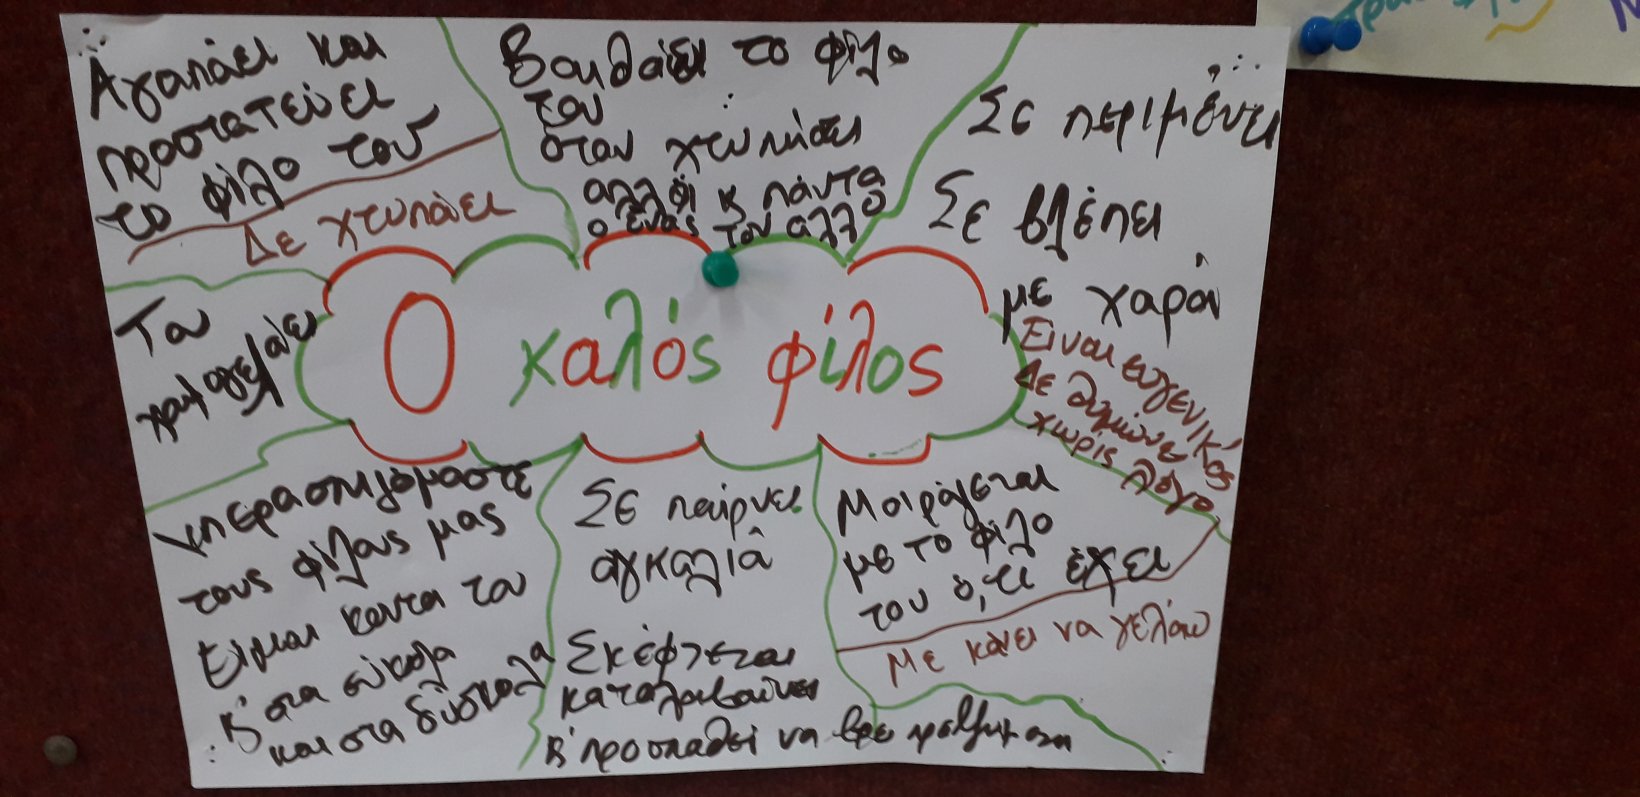 Αγαπάει και
προστατεύει
το φίλο του
Δε χτυπάει
Βουθάει το φίλο
του
όταν χτυπήσει
αλλά κ πάντα
ο ένας τον άλλο
Σε περιμένει
Σε βλέπει
με χαρά
Είναι ευγενικός
Δε θυμώνει
χωρίς λόγο
Του
Ο καλός φίλος
Υπερασπιζόμαστε
τους φίλους μας
Είμαι κοντα του
κ' στα εύκολα
και στα δύσκολα
Σε παίρνει
αγκαλιά
Σκέφτεται
καταλαβαίνει
κ' προσπαθεί να βρε
Μοιράζεται
με το φίλο
του ό,τι έχει
Με κάνει να γελάω